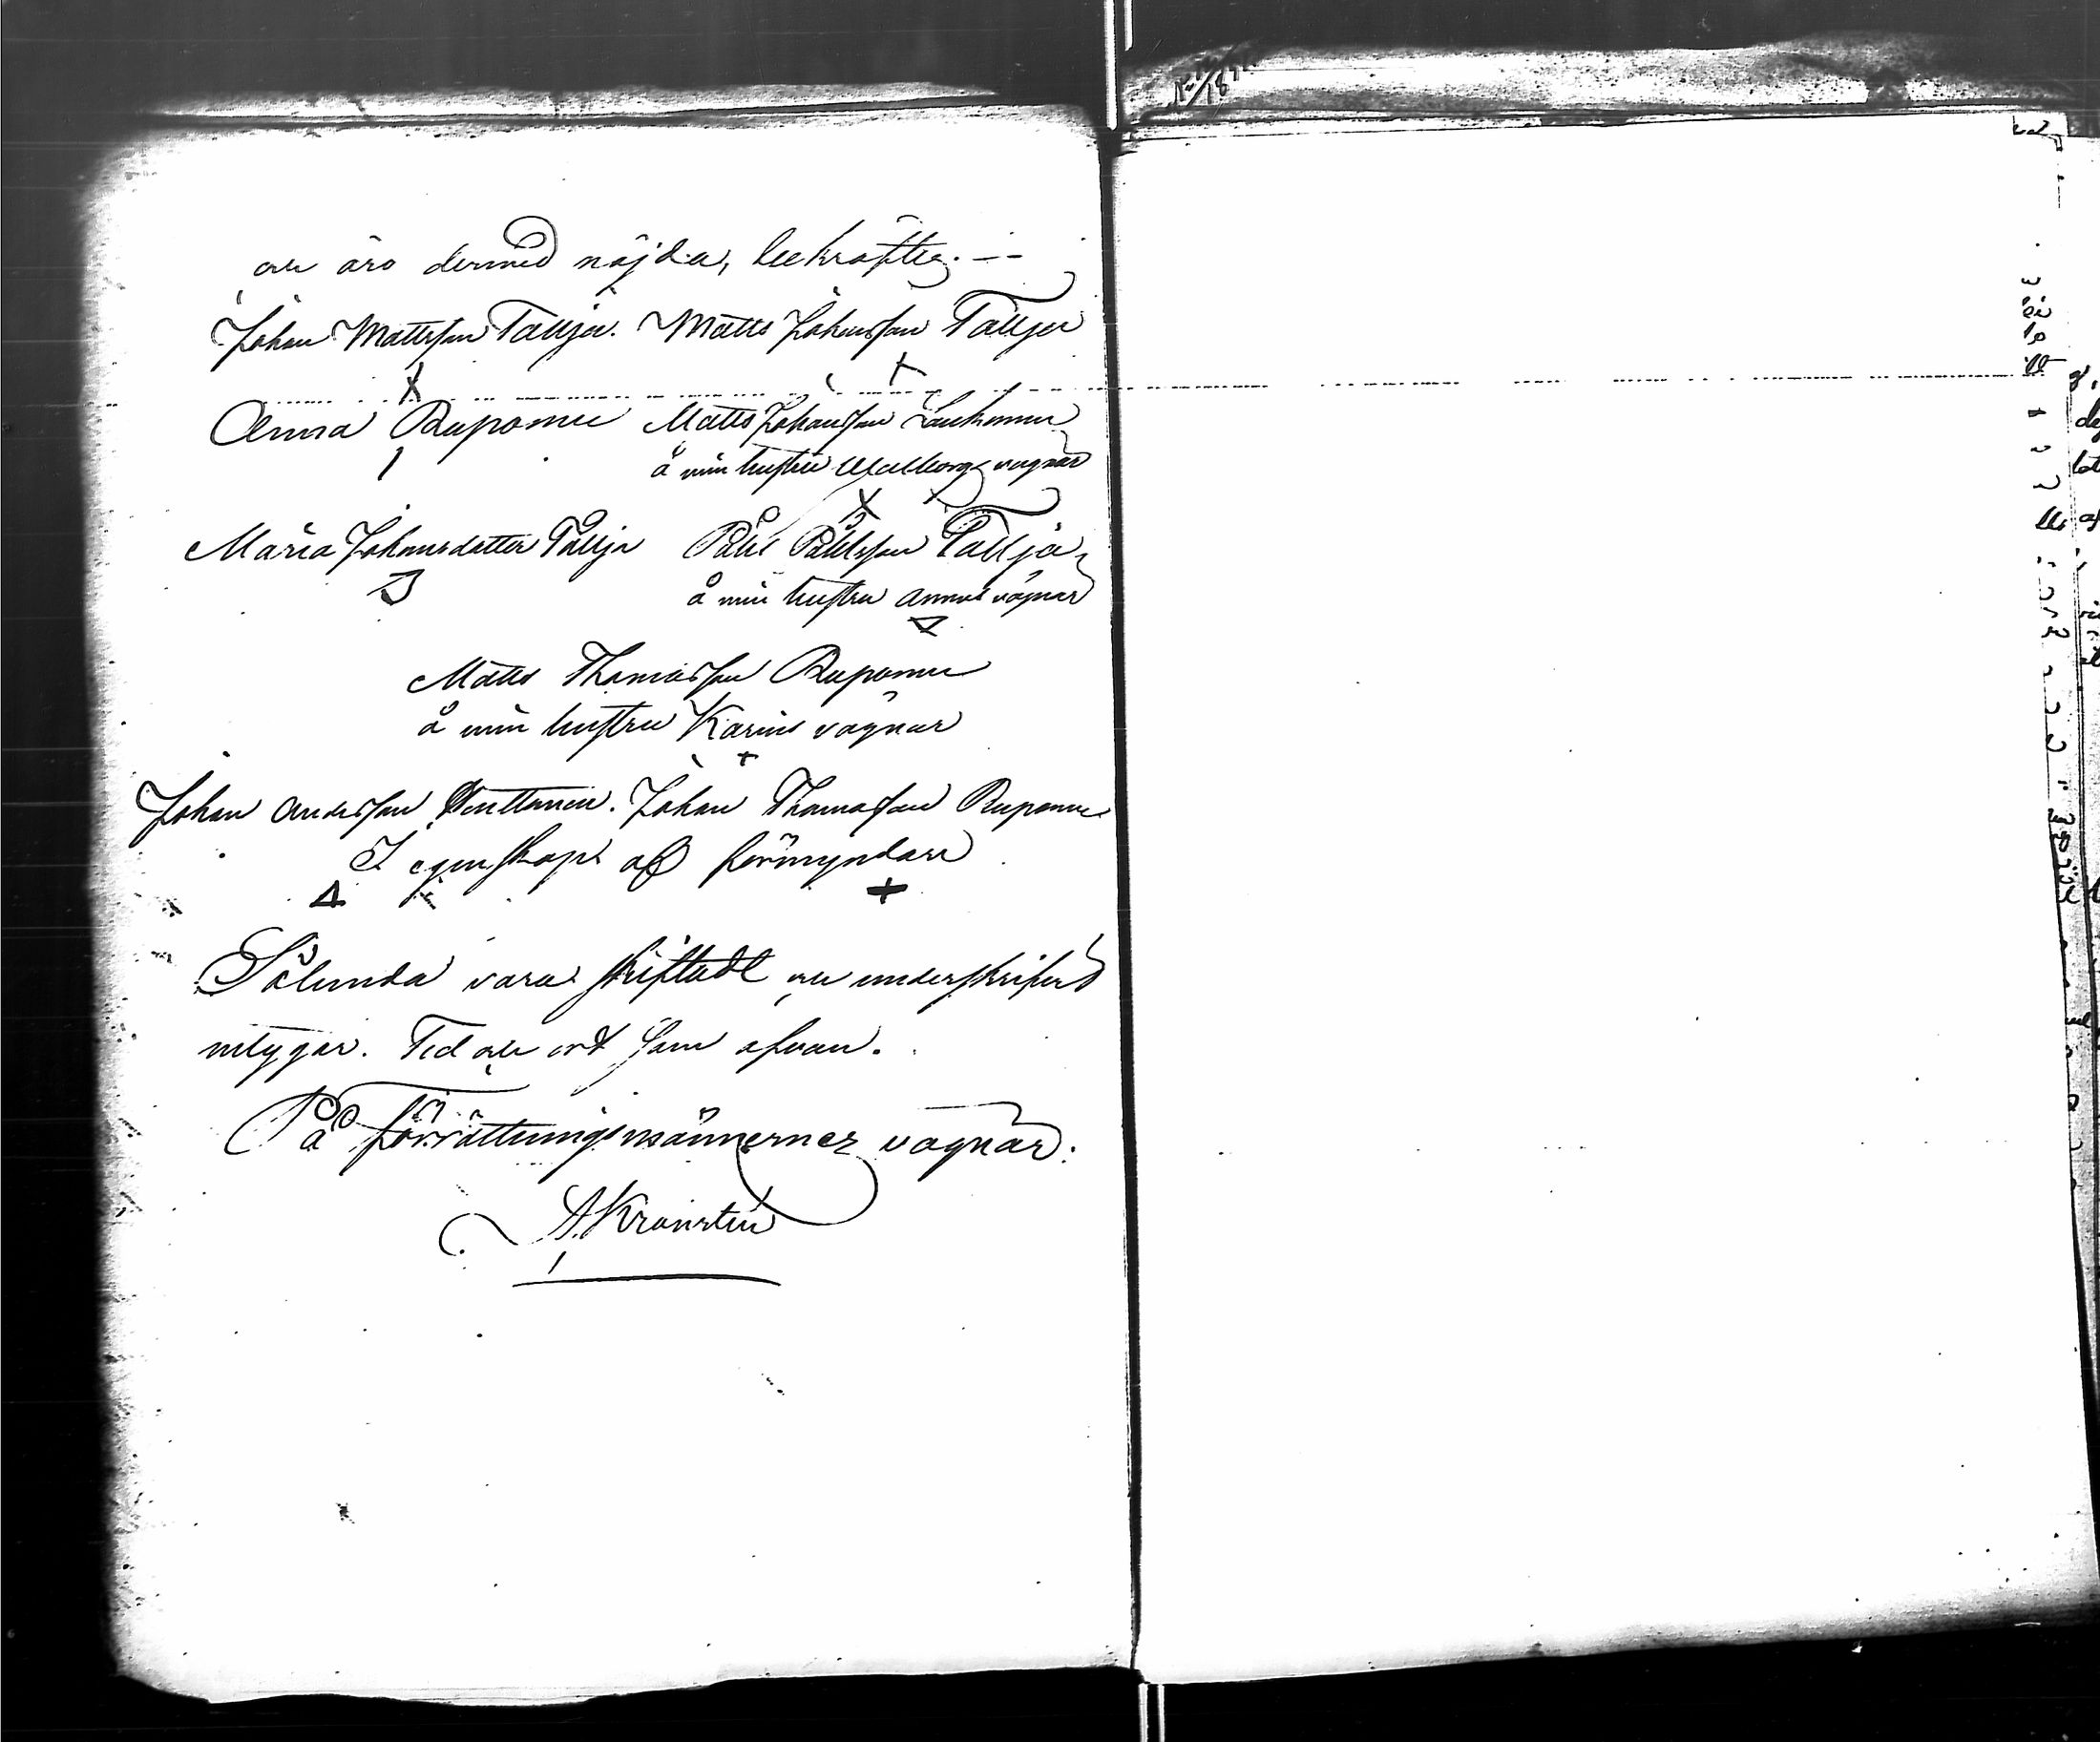 och äro dermed nöjda, bekräfta. —
Johan Mattsson Tallja. Matts Johansson Tallja
X X
Anna Ruponen Matts Johansson Laukonen
å min hustru Walborgs vägnar
X X
Maria Johansdotter Tallja Påhl Påhlsson Tallja
å min hustru Annas vägnar
Matts Thomasson Ruponen
å min hustru Karins vägnar
+
Johan Andersson Penttonen. Johan Thomasson Ruponen
I egenskap af förmyndare
Δ +
Sålunda vara skiftadt och underskrifvet
intygar. Tid och ort som ofvan.
På förrättningsmännernes vägnar:
A. Kransten